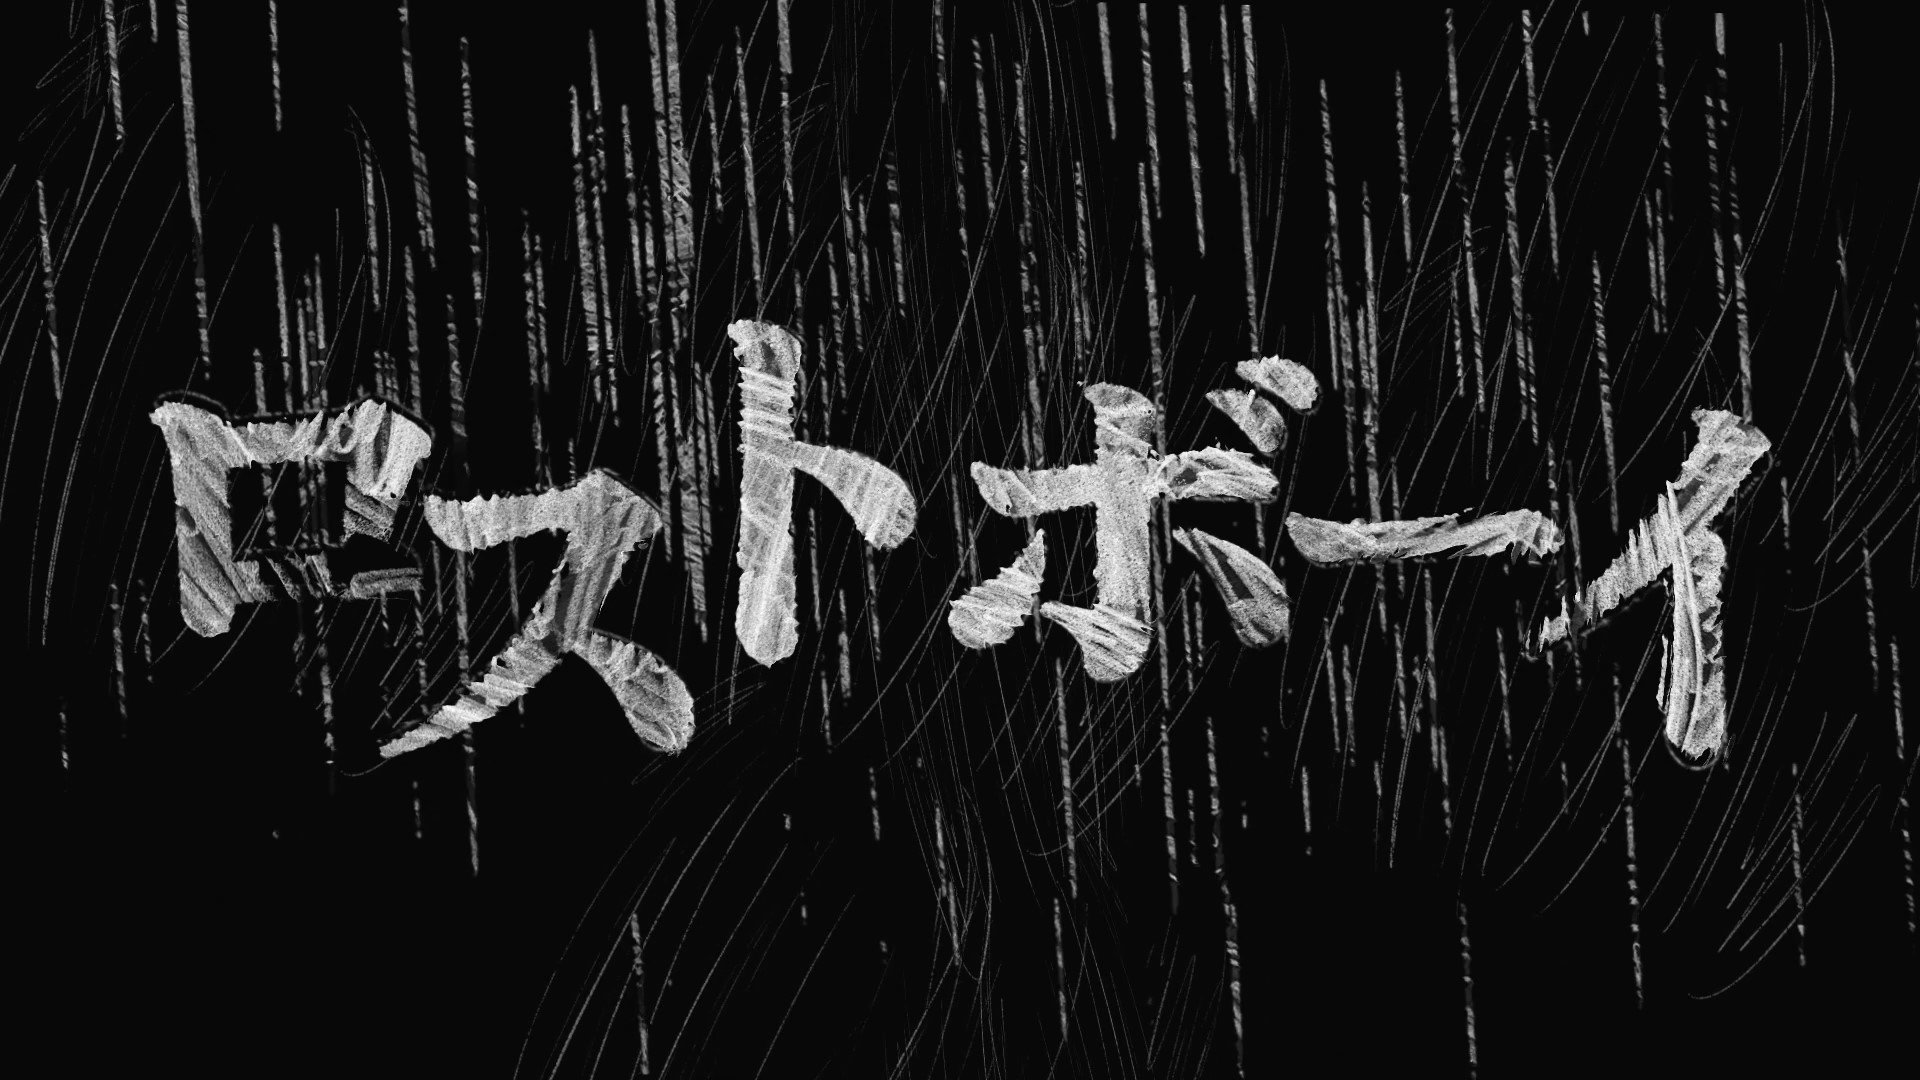 ロストボーイ